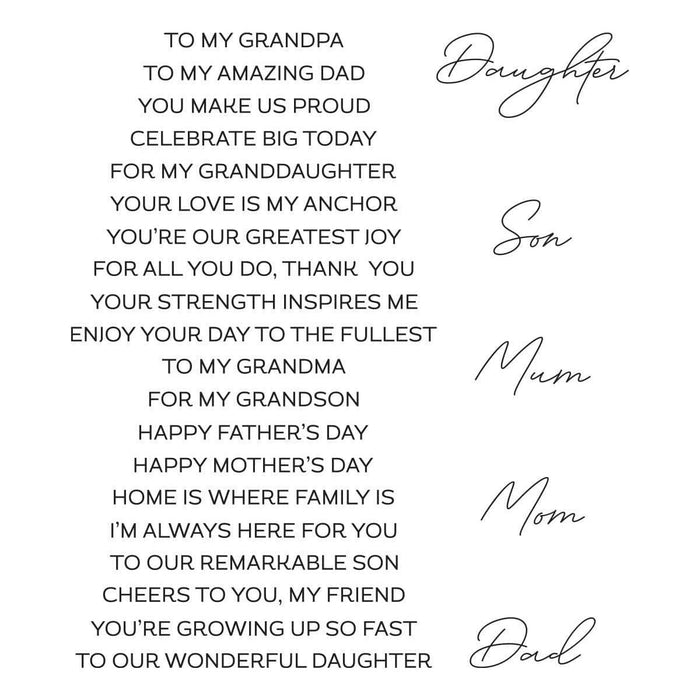 TO MY GRANDPA
TO MY AMAZING DAD
YOU MAKE US PROUD
CELEBRATE BIG TODAY
FOR MY GRANDDAUGHTER
YOUR LOVE IS MY ANCHOR
YOU'RE OUR GREATEST JOY
FOR ALL YOU DO, THANK YOU
YOUR STRENGTH INSPIRES ME
ENJOY YOUR DAY TO THE FULLEST
TO MY GRANDMA
FOR MY GRANDSON
HAPPY FATHER'S DAY
HAPPY MOTHER'S DAY
HOME IS WHERE FAMILY IS
I'M ALWAYS HERE FOR YOU
TO OUR REMARKABLE SON
CHEERS TO YOU, MY FRIEND
YOU'RE GROWING UP SO FAST
TO OUR WONDERFUL DAUGHTER
Daughter
Son
Mum
Mom
Dad